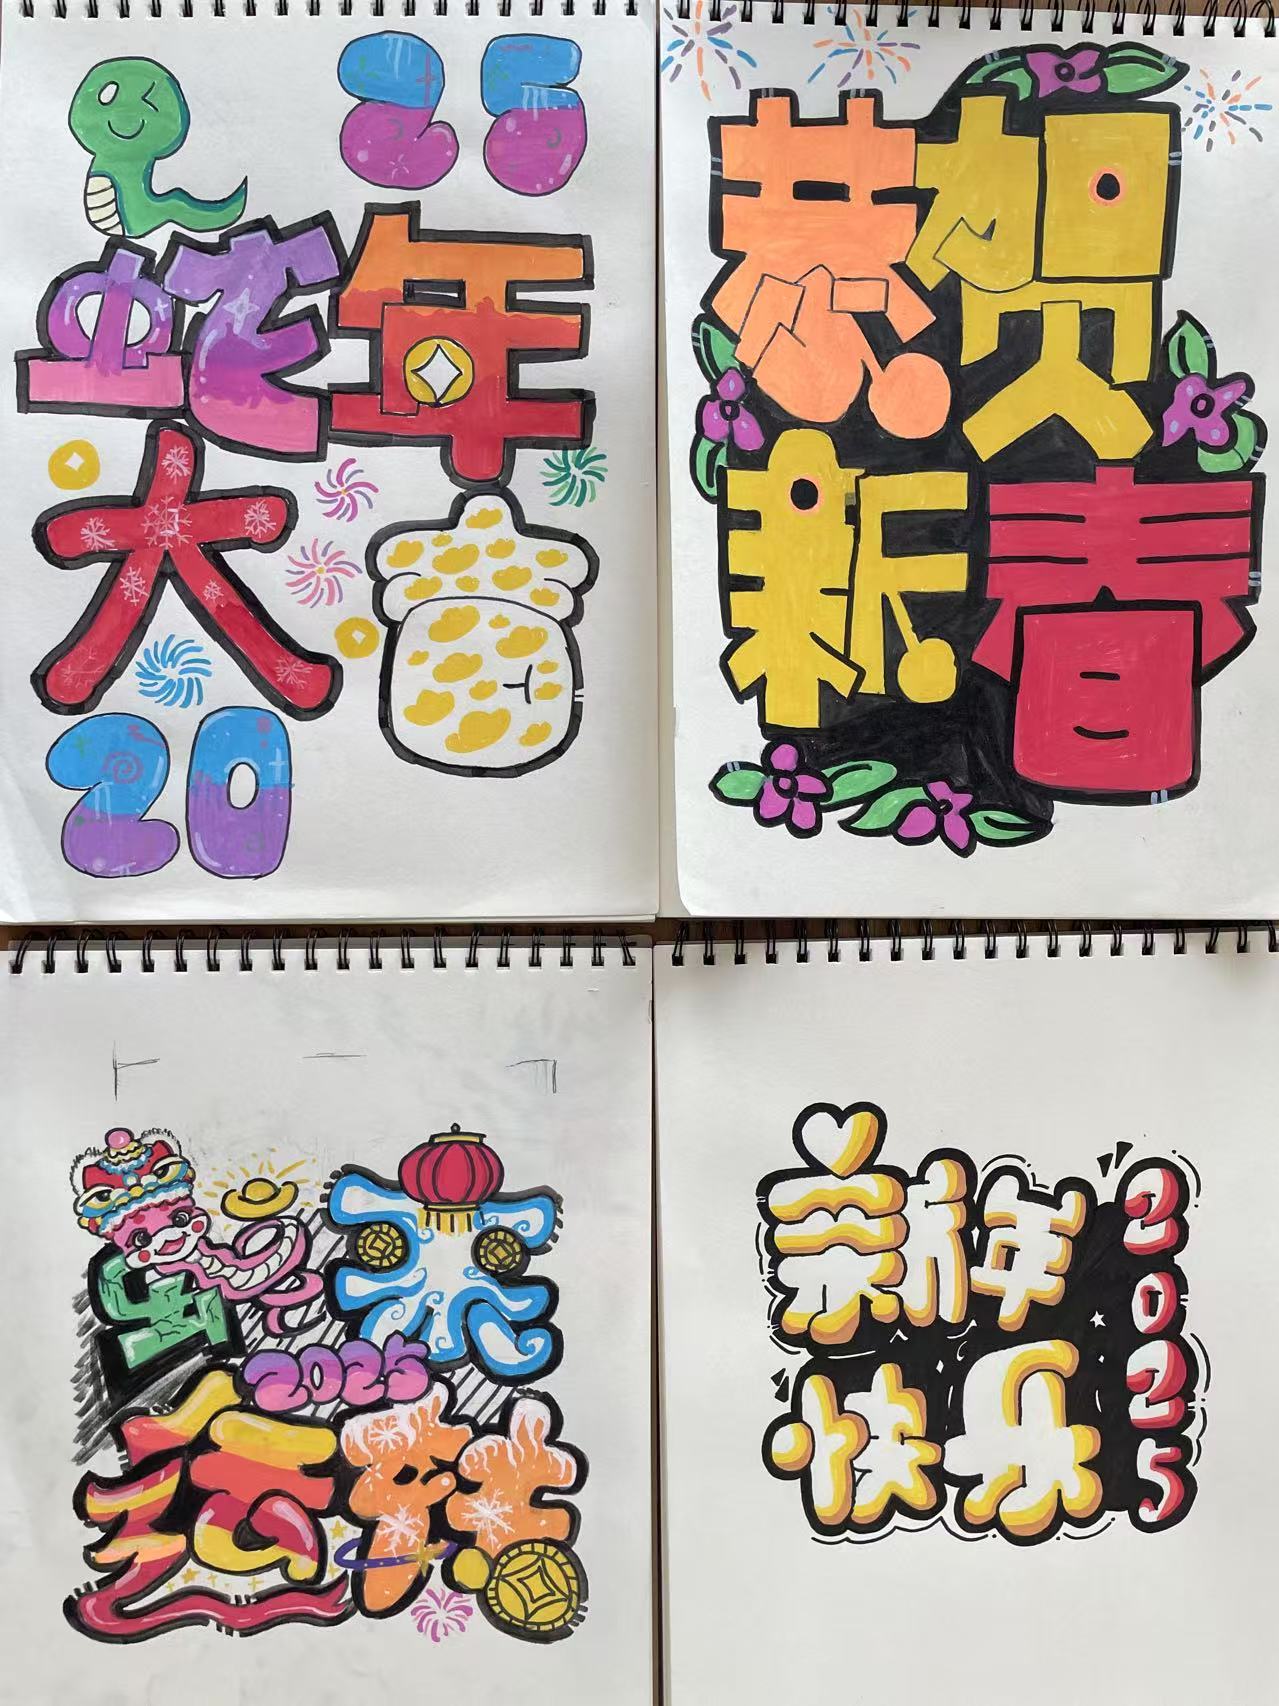 25
蛇年
大吉
20
恭贺
新春
蛇来
2025
运转
新年
快乐
2025